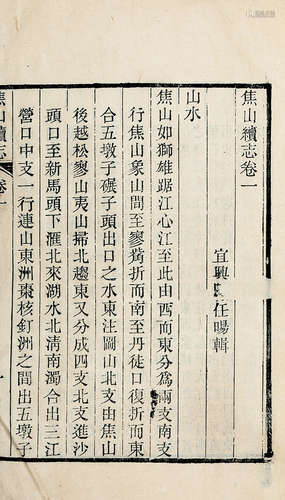 焦山續志卷一
宜興 任暘輯
山水
焦山如獅雄踞江心江至此由西而東分爲兩支南支
行焦山象山間至寥觜折而南至丹徒口復折而東
合五墩子礮子頭出口之水東注圌山北支由焦山
後越松寥山夷山掃北趨東又分成四支北支進沙
頭口至新馬頭下滙北來湖水北清南濁合出三江
營口中支一行連山東洲棗核釘洲之間出五墩子
焦山續志
卷一